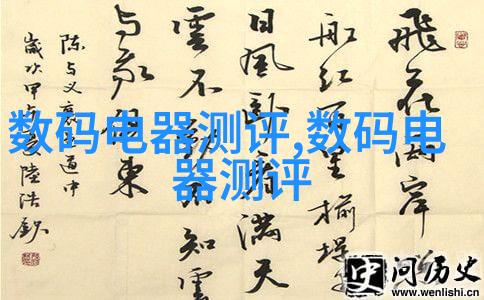 飛花兩岸
船紅百里榆堤
日風臥看滿天
雲不動不知雲
与我俱東
陈与义襄邑道中
歲次甲午夏陸浩
数码电器测评,数码电
器测评
问历史
www.wenlishi.com